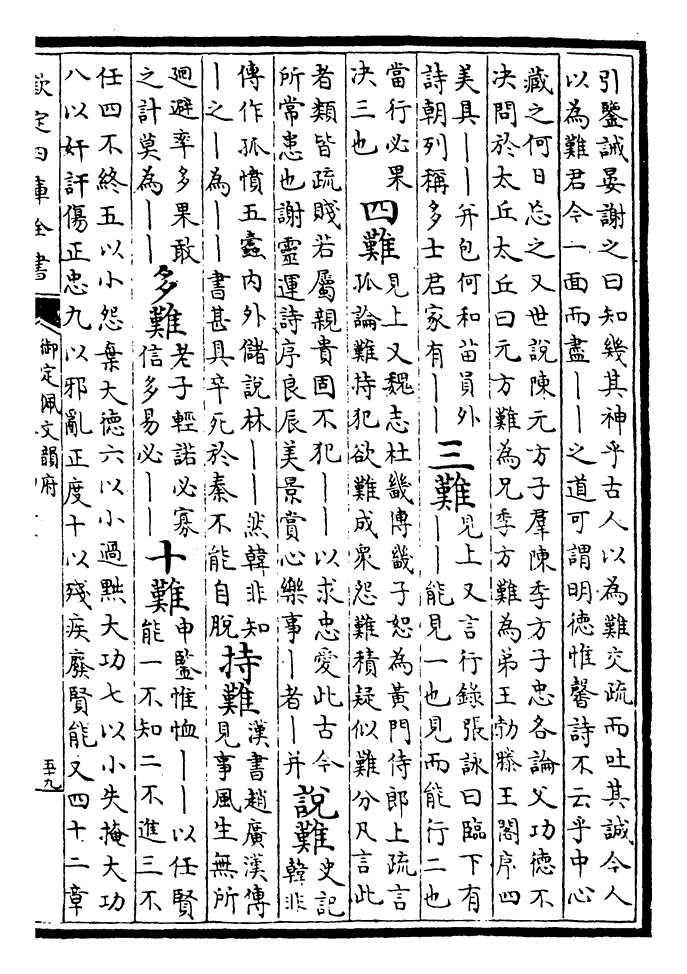 引鑒誡晏謝之曰知幾其神乎古人以為難交疏而吐其誠今人
以為難君今一面而盡——之道可謂明德惟馨詩不云乎中心
藏之何日忘之又世說陳元方子羣陳季方子忠各論父功德不
決問於太丘太丘曰元方難為兄季方難為弟王勃滕王閣序四
美具——并包何和啚員外
詩朝列稱多士君家有——
三難
見上又言行錄張詠曰臨下有
——能見一也見而能行二也
當行必果
決三也
四難
見上又魏志杜畿傳畿子恕為黃門侍郎上疏言
孤論難持犯欲難成衆怨難積疑似難分凡言此
者類皆疏賤若屬親貴固不犯——以求忠愛此古今
所常患也謝靈運詩序良辰美景賞心樂事—者—并
說難
史記
韓非
傳作孤憤五蠹内外儲說林——然韓非知
—之—為——書甚具卒死於秦不能自脫
持難
漢書趙廣漢傳
見事風生無所
迴避率多果敢
之計莫為——
多難
老子輕諾必寡
信多易必——
十難
申鑒惟恤——以任賢
能一不知二不進三不
任四不終五以小怨棄大德六以小過黜大功七以小失掩大功
八以奸訐傷正忠九以邪亂正度十以殘疾廢賢能又四十二章
欽定四庫全書
御定佩文韻府
五十九